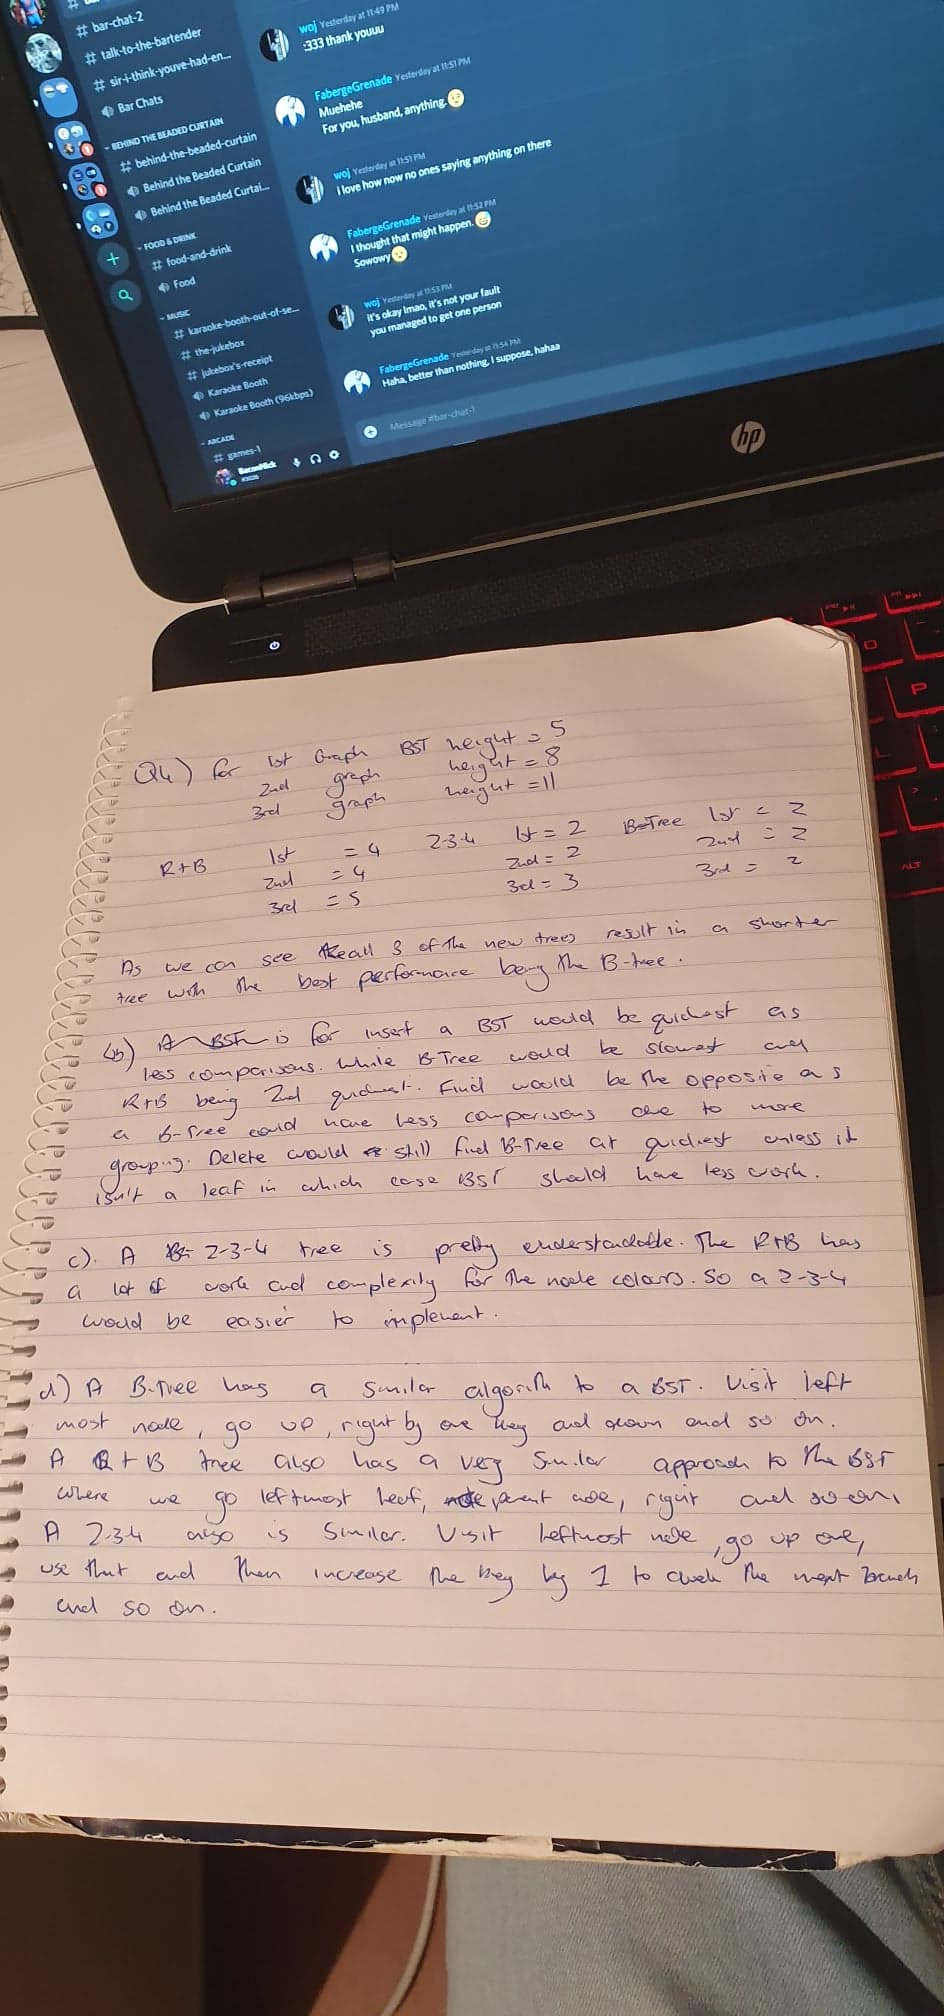 # bar-chat-2
# talk-to-the-bartender
# sir-i-think-youve-had-en...
Bar Chats
BEHIND THE BEADED CURTAIN
# behind-the-beaded-curtain
Behind the Beaded Curtain
Behind the Beaded Curtai...
FOOD & DRINK
# food-and-drink
Food
MUSIC
# karaoke-booth-out-of-se...
# the-jukebox
# jukebox's-receipt
Karaoke Booth
Karaoke Booth (96kbps)
ARCADE
# games-1
BaconFlick
woj Yesterday at 11:49 PM
:333 thank youuu
FabergeGrenade Yesterday at 11:51 PM
Muehehe
For you, husband, anything.
woj Yesterday at 11:51 PM
I love how now no ones saying anything on there
FabergeGrenade Yesterday at 11:52 PM
I thought that might happen.
Sowowy
woj Yesterday at 11:53 PM
it's okay lmao, it's not your fault
you managed to get one person
FabergeGrenade Yesterday at 11:54 PM
Haha, better than nothing, I suppose, hahaa
Message #bar-chat-1
hp
P
ALT
Q4) for 1st Graph BST height = 5
2nd graph height = 8
3rd graph height = 11
R+B 1st = 4 2-3-4 1st = 2 B-Tree 1st = 2
2nd = 4 2nd = 2 2nd = 2
3rd = 5 3rd = 3 3rd = 2
As we can see all 3 of the new trees result in a shorter
tree with the best performance being the B-tree.
b) for insert a BST would be quickest as
less comparisons. While B-Tree would be slowest and
R+B being 2nd quickest. Find would be the opposite as
a B-Tree could have less comparisons due to more
grouping. Delete would still find B-Tree at quickest unless it
isn't a leaf in which case BST should have less work.
c). A 2-3-4 tree is pretty understandable. The R+B has
a lot of work and complexity for the node colours. So a 2-3-4
would be easier to implement.
d) A B-Tree has a similar algorith to a BST. Visit left
most node, go up, right by one key and down and so on.
A R+B tree also has a very similar approach to the BST
where we go leftmost leaf, parent node, right and so on.
A 2-3-4 also is similar. Visit leftmost node, go up one,
use that and then increase the key by 1 to check the next branch
and so on.